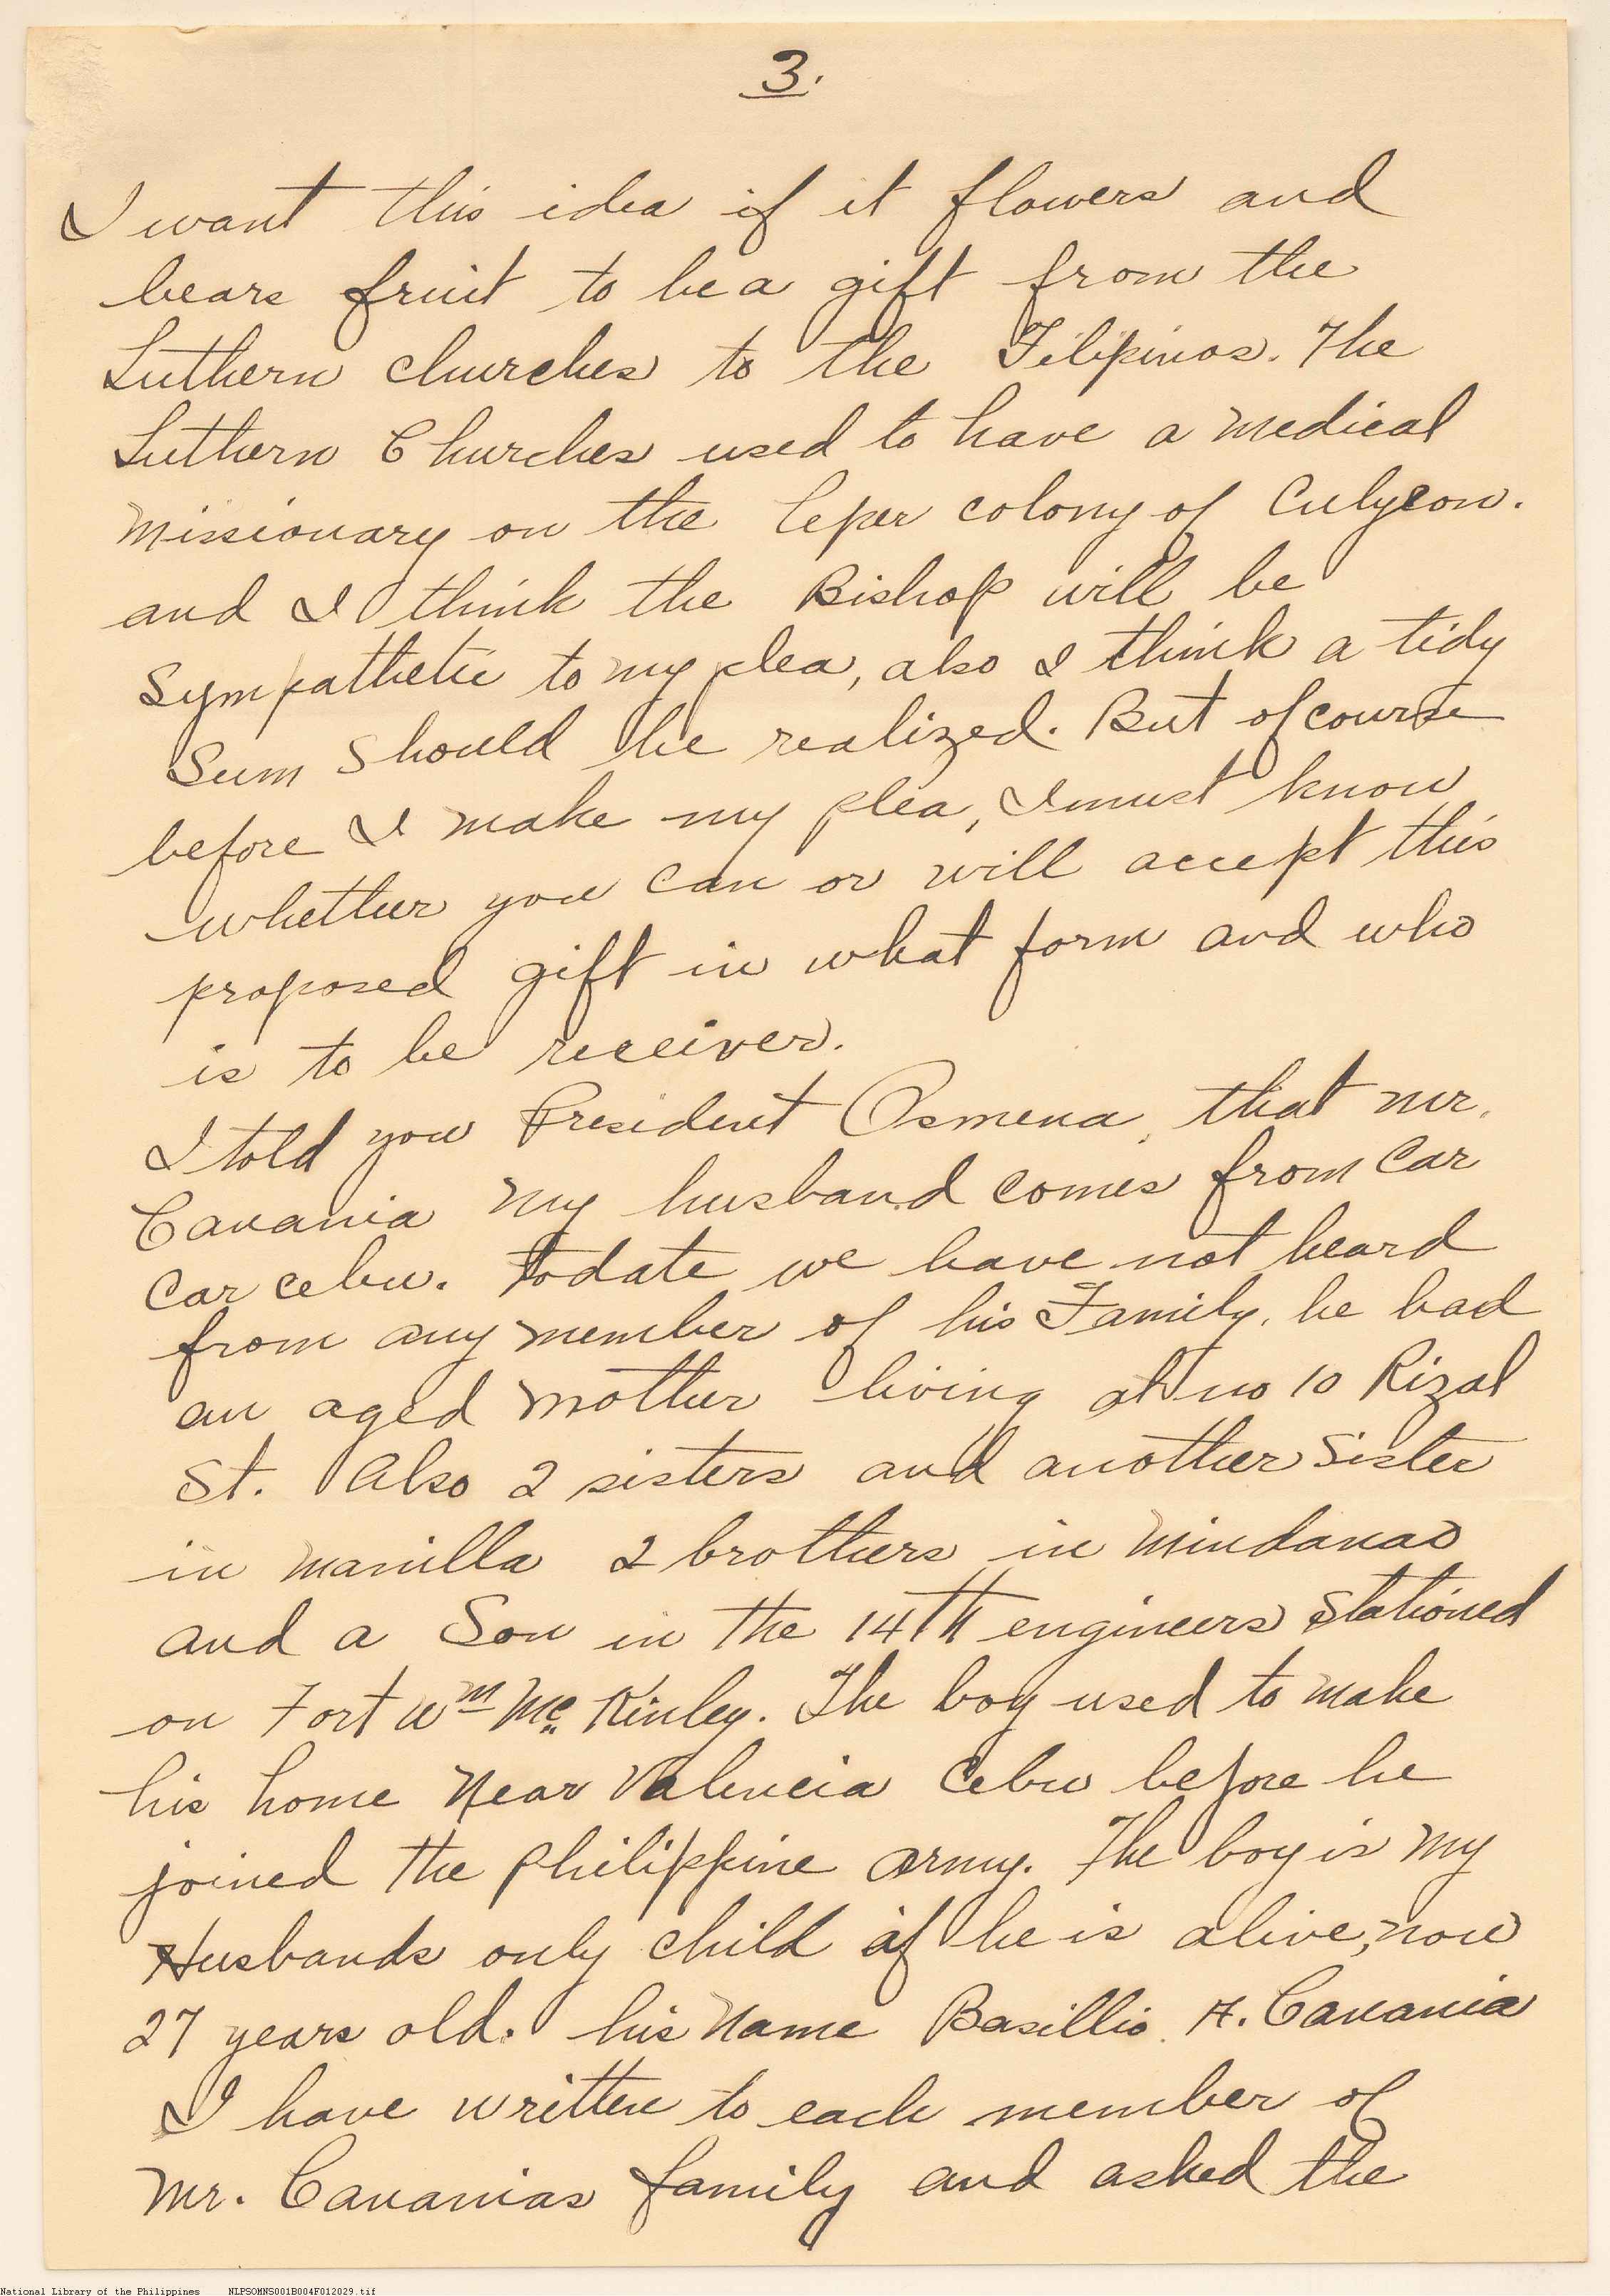 3.
I want this idea if it flowers and
bears fruit to be a gift from the
Luthern churches to the Filipinos. The
Luthern Churches used to have a medical
missionary on the leper colony of Culycon.
and I think the Bishop will be
sympathetic to my plea, also I think a tidy
sum should be realized. But of course
before I make my plea, I must know
whether you can or will accept this
proposed gift in what form and who
is to be receiver.
I told you President Osmena, that mr.
Canania my husband comes from Car
Car cebu. todate we have not heard
from any member of his Family. he had
an aged mother living at no 10 Rizal
St. Also 2 sisters and another sister
in manilla 2 brothers in mindanao
and a Son in the 14TH engineers stationed
on Fort Wm Mc Kinley. The boy used to make
his home near Valencia Cebu before he
joined the Philippine army. The boy is my
Husbands only child if he is alive, now
27 years old. his name Basillio. A. Canania
I have written to each member of
Mr. Cananias family and asked the
National Library of the Philippines NLPSOMNS001B004F012029.tif